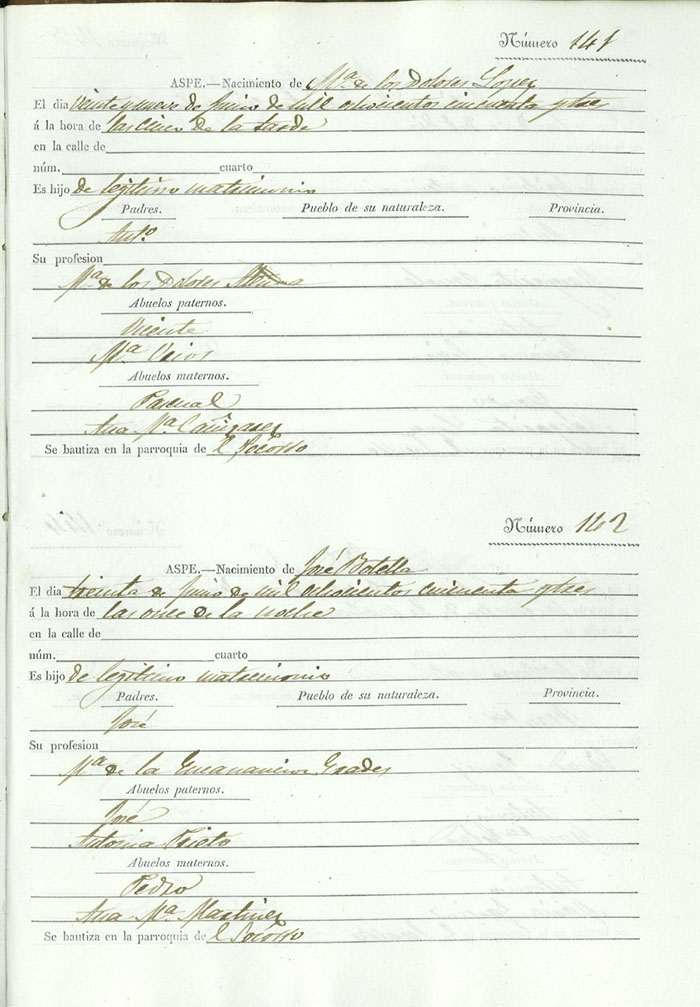 Número 141
ASPE.—Nacimiento de Mª de los Dolores Lopez
El dia veinte y nueve de Junio de mil ochocientos cincuenta y tres
á la hora de las cinco de la tarde
en la calle de
núm. cuarto
Es hijo de legitimo matrimonio
Padres. Pueblo de su naturaleza. Provincia.
Antº
Su profesion
Mª de los Dolores
Abuelos paternos.
Vicente
Mª
Abuelos maternos.
Pascual
Ana Mª Cañizares
Se bautiza en la parroquia de el Socorro
Número 142
ASPE.—Nacimiento de José Botella
El dia treinta de Junio de mil ochocientos cincuenta y tres
á la hora de las once de la noche
en la calle de
núm. cuarto
Es hijo de legitimo matrimonio
Padres. Pueblo de su naturaleza. Provincia.
José
Su profesion
Mª de la Encarnacion
Abuelos paternos.
José
Antonia Prieto
Abuelos maternos.
Pedro
Ana Mª Martinez
Se bautiza en la parroquia de el Socorro